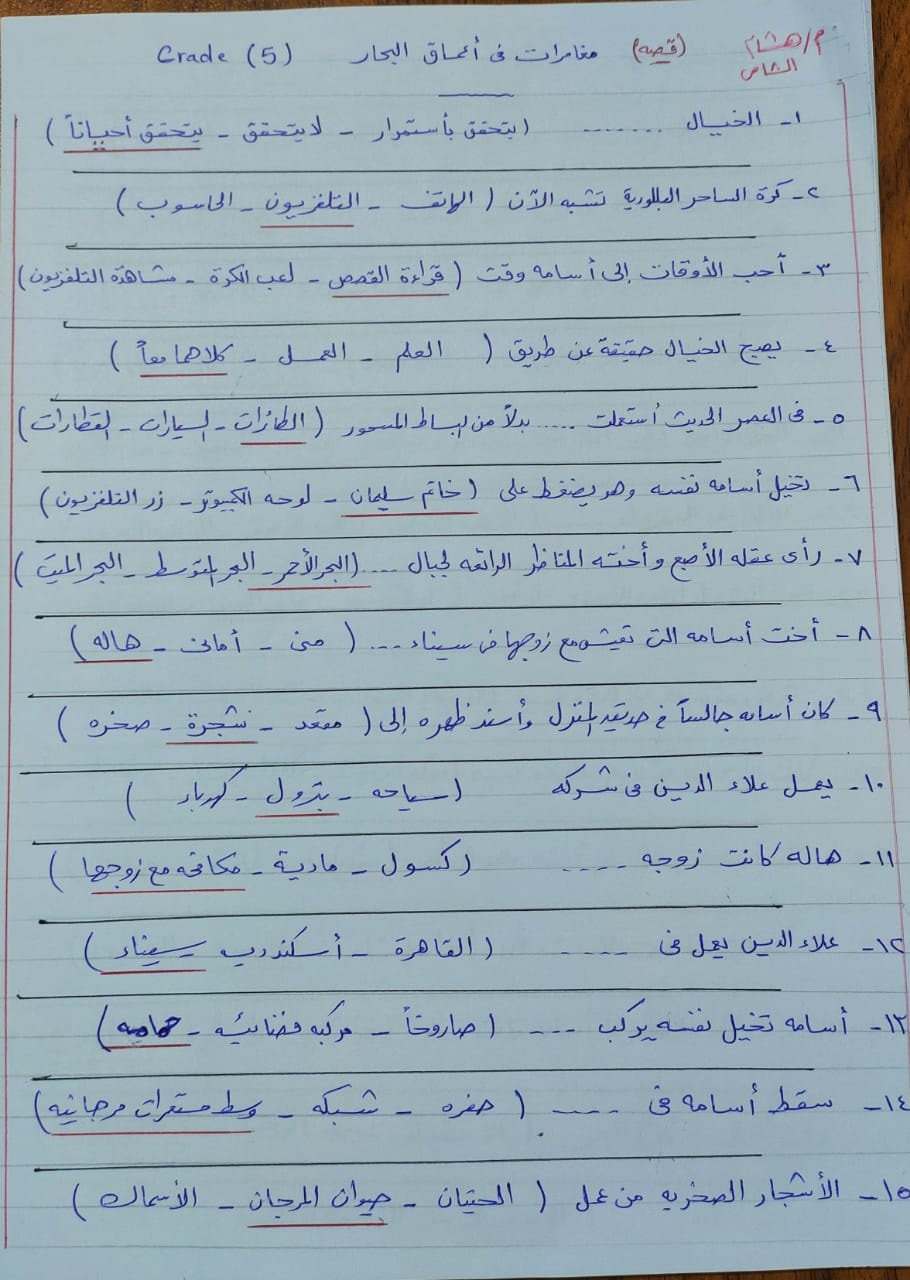 م/ هشام الشامى
(قصه) مغامرات فى أعماق البحار Grade (5)
١- الخيال ........ (يتحقق بأستمرار - لا يتحقق - يتحقق أحياناً)
٢- كرة الساحر البللورية تشبه الآن (الهاتف - التلفزيون - الحاسوب)
٣- أحب الأوقات إلى أسامه وقت (قراءة القصص - لعب الكرة - مشاهدة التلفزيون)
٤- يصبح الخيال حقيقة عن طريق (العلم - العمل - كلاهما معاً)
٥- فى العصر الحديث أستعملت ..... بدلاً من البساط المسحور (الطائرات - السيارات - القطارات)
٦- تخيل أسامه نفسه وهو يضغط على (خاتم سليمان - لوحه الكمبيوتر - زر التلفزيون)
٧- رأى عقله الأصبع وأخته المناظر الرائعه لجبال .... (البحر الأحمر - البحر المتوسط - البحر الميت)
٨- أخت أسامه التى تعيش مع زوجها فى سيناء .... (منى - أمانى - هاله)
٩- كان أسامه جالساً فى حديقه المنزل وأسند ظهره إلى (مقعد - شجرة - صخره)
١٠- يعمل علاء الدين فى شركه (سياحه - بترول - كهرباء)
١١- هاله كانت زوجه ..... (كسول - مادية - مكافحه مع زوجها)
١٢- علاء الدين يعمل فى ..... (القاهرة - أسكندريه - سيناء)
١٣- أسامه تخيل نفسه يركب .... (صاروخاً - مركبه فضائيه - حمامه)
١٤- سقط أسامه فى ..... (حفره - شبكه - وسط مستعمرات مرجانيه)
١٥- الأشجار الصخريه من عمل (الحيتان - حيوان المرجان - الأسماك)